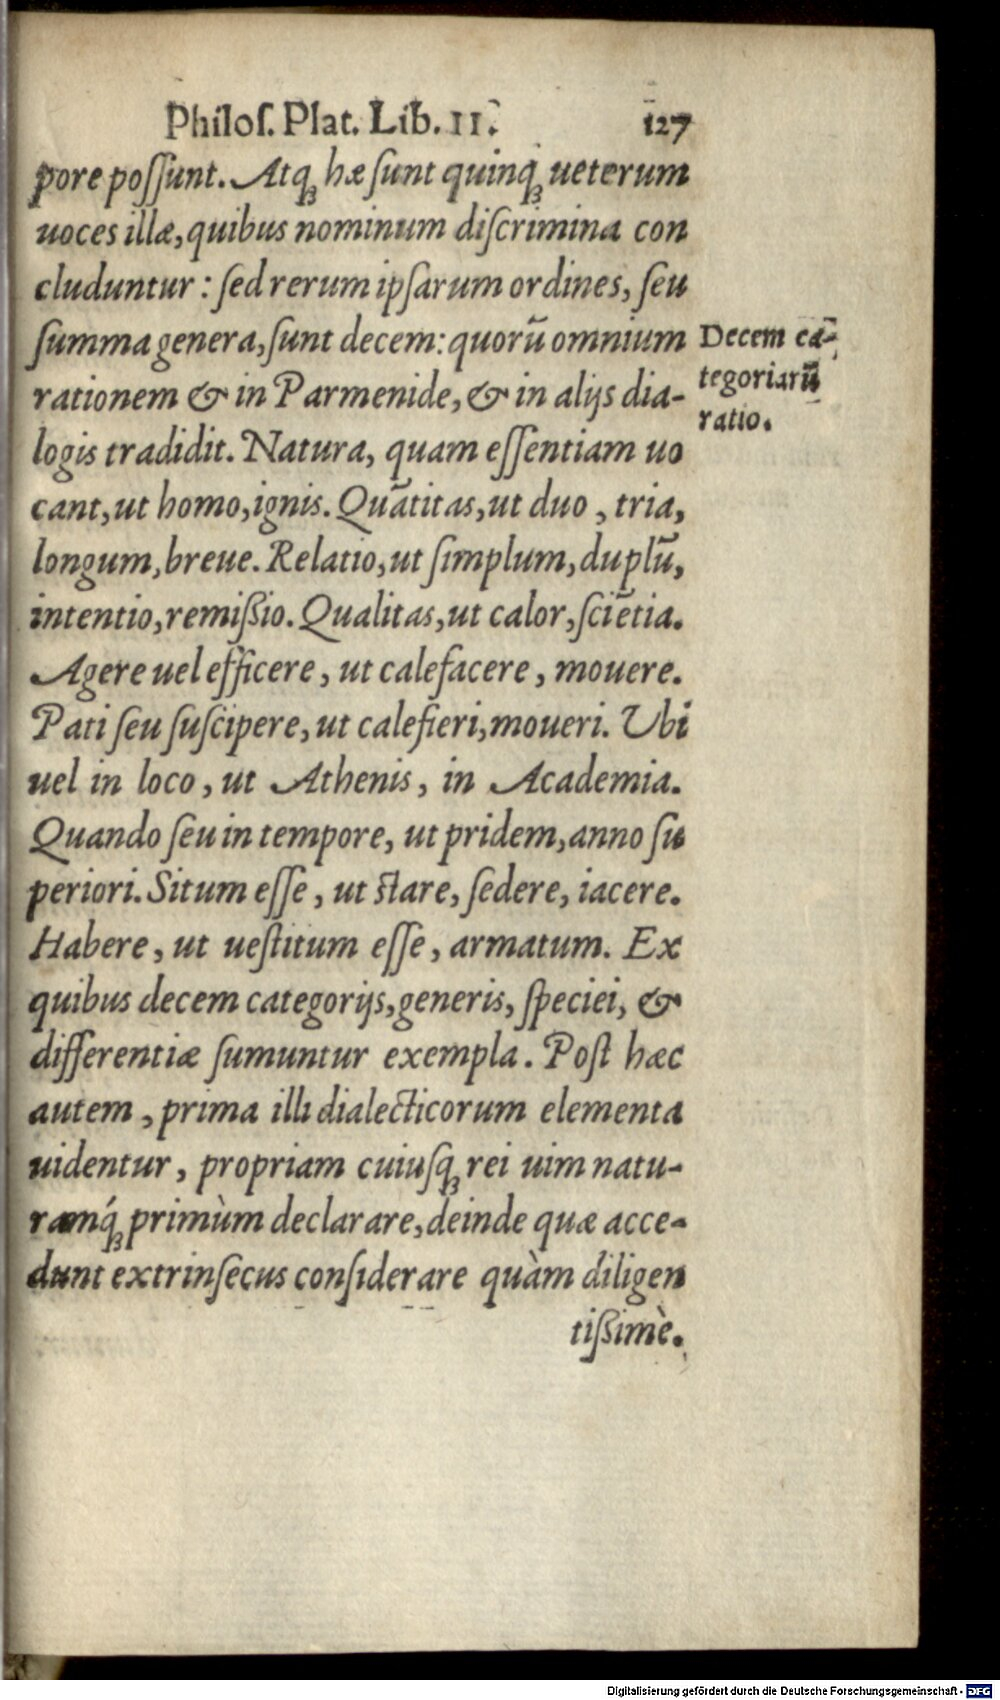 Philoſ. Plat. Lib. II. 127
pore poſſunt. Atq́ꝫ hæ ſunt quinq́ꝫ ueterum
uoces illæ, quibus nominum diſcrimina con
cluduntur: ſed rerum ipſarum ordines, ſeu
ſumma genera, ſunt decem: quorũ omnium
rationem & in Parmenide, & in alijs dia-
logis tradidit. Natura, quam eſſentiam uo
cant, ut homo, ignis. Quãtitas, ut duo, tria,
longum, breue. Relatio, ut ſimplum, duplũ,
intentio, remißio. Qualitas, ut calor, ſciẽtia.
Agere uel efficere, ut calefacere, mouere.
Pati ſeu ſuſcipere, ut calefieri, moueri. Ubi
uel in loco, ut Athenis, in Academia.
Quando ſeu in tempore, ut pridem, anno ſu
periori. Situm eſſe, ut ſtare, ſedere, iacere.
Habere, ut ueſtitum eſſe, armatum. Ex
quibus decem categorijs, generis, ſpeciei, &
differentiæ ſumuntur exempla. Poſt hæc
autem, prima illi dialecticorum elementa
uidentur, propriam cuiuſqꝫ rei uim natu-
ramq́ꝫ primùm declarare, deinde quæ acce-
dunt extrinſecus conſiderare quàm diligen
tißimè.
Decem ca-
tegoriarũ
ratio.
Digitalisierung gefördert durch die Deutsche Forschungsgemeinschaft - DFG